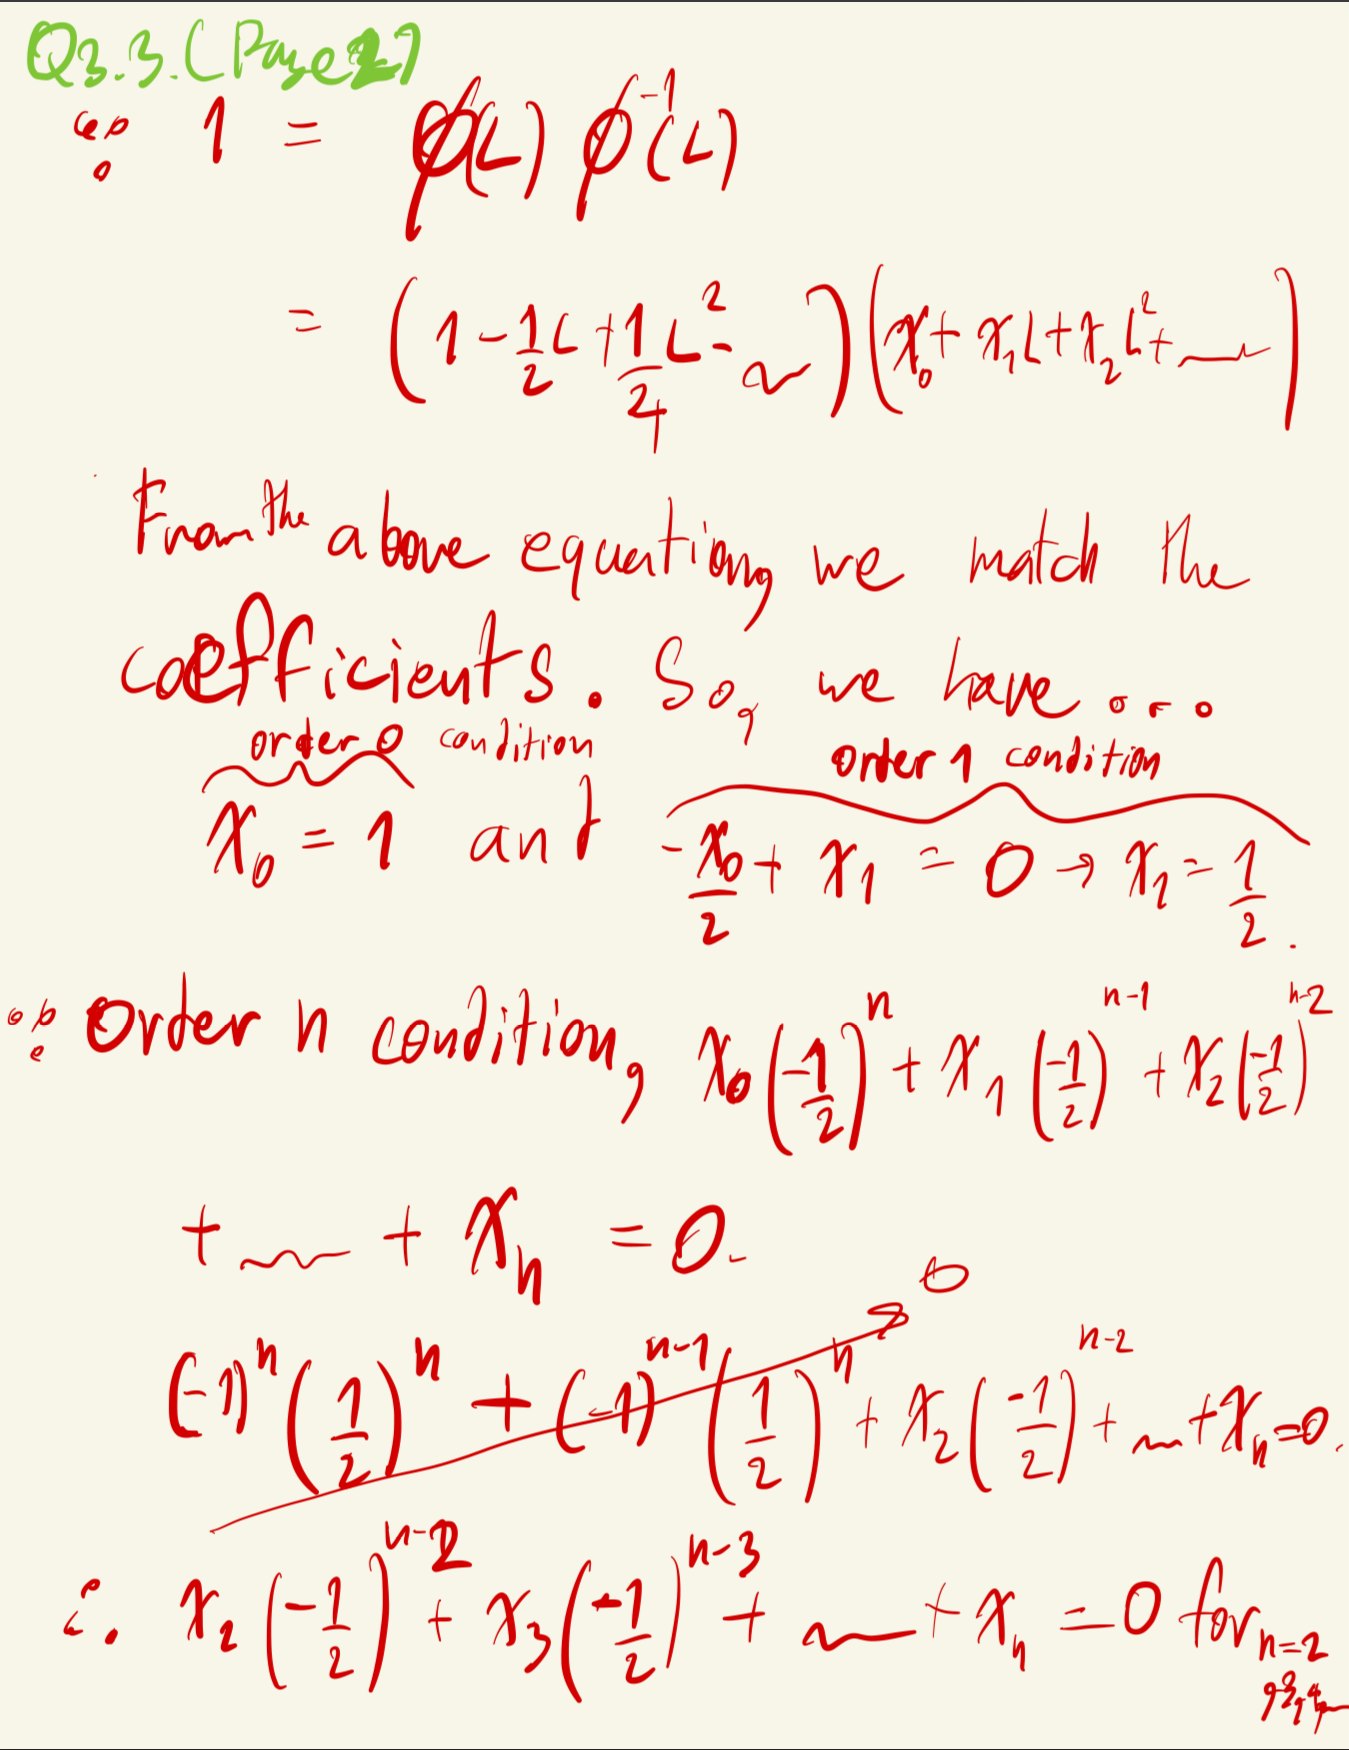 Q3.3. (Page 2)
∴ 1 = ϕ(L) ϕ⁻¹(L)
= (1 - 1/2 L + 1/4 L² - ~) (x₀ + x₁L + x₂L² + ~)
From the above equation, we match the
coefficients. So, we have ...
order 0 condition order 1 condition
x₀ = 1 and -x₀/2 + x₁ = 0 → x₁ = 1/2.
∴ Order n condition, x₀(-1/2)ⁿ + x₁(-1/2)ⁿ⁻¹ + x₂(-1/2)ⁿ⁻²
+ ~ + xₙ = 0.
(-1)ⁿ(1/2)ⁿ + (-1)ⁿ⁻¹(1/2)ⁿ → 0 + x₂(-1/2)ⁿ⁻² + ~ + xₙ = 0.
∴ x₂(-1/2)ⁿ⁻² + x₃(-1/2)ⁿ⁻³ + ~ + xₙ = 0 for n=2
,3,4,~